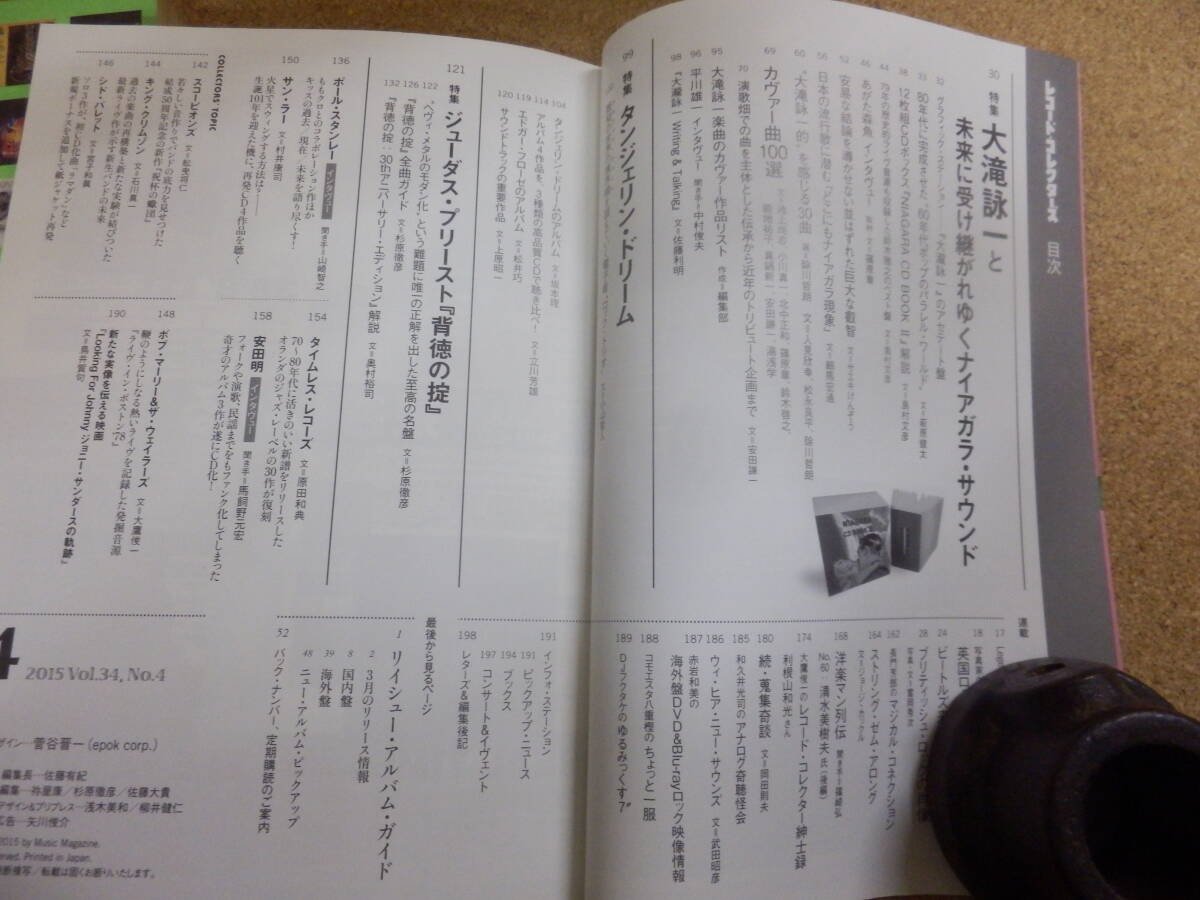 レコード・コレクターズ 目次
30 特集 大滝詠一と
未来に受け継がれゆくナイアガラ・サウンド
32 グラフィック・ステーション 『大瀧詠一』のアセテート盤
33 80年代に完成させた、60年代ポップのパラレル・ワールド 文=萩原健太
38 12枚組CDボックス『NIAGARA CD BOOK II』解説
46 あがた森魚 インタヴュー
52 安易な結論を導かせない並はずれた巨大な叡智 文=サエキけんぞう
56 日本の流行歌に潜む「どこにもナイアガラ現象」 文=細馬宏通
60 “大滝詠一的”を感じる30曲
69 カヴァー曲100選
70 演歌畑での曲を主体とした伝承から近年のトリビュート企画まで 文=安田謙一
95 大滝詠一楽曲のカヴァー作品リスト 作成=編集部
96 平川雄一 インタヴュー 聞き手=中村俊夫
98 『大瀧詠一 Writing & Talking』 文=佐藤利明
99 特集 タンジェリン・ドリーム
104 タンジェリン・ドリームのアルバム 文=坂本理
114 アルバム4作品を、3種類の高品質CDで聴き比べ! 文=立川芳雄
119 エドガー・フローゼのアルバム 文=松井巧
120 サウンドトラックの重要作品 文=上原昭一
121 特集 ジューダス・プリースト『背徳の掟』
122 “ヘヴィ・メタルのモダン化”という難題に唯一の正解を出した至高の名盤 文=杉原徹彦
126 『背徳の掟』全曲ガイド 文=杉原徹彦
132 『背徳の掟:30thアニバーサリー・エディション』解説 文=奥村裕司
136 ポール・スタンレー インタヴュー 聞き手=山崎智之
ももクロとのコラボレーション作ほか
キッスの過去/現在/未来を語り尽くす!
150 サン・ラー 文=村井康司
火星でスウィングする方法は?――
生誕101年を迎えた機に、再発CD4作品を聴く
154 タイムレス・レコーズ 文=原田和典
70〜80年代に活きのいい新譜をリリースした
オランダのジャズ・レーベルの30作が復刻
158 安田明 インタヴュー 聞き手=馬飼野元宏
フォークや演歌、民謡までをもファンク化してしまった
奇才のアルバム3作が遂にCD化!
COLLECTORS' TOPIC
142 スコーピオンズ
若々しい音作りでバンドの底力を見せつけた
結成50周年記念の新作『祝杯の蠍団』
144 キング・クリムゾン 文=石川真一
過去の楽曲の再構築と新たな実験が結びついた
最新ライヴ作が示す新生バンドの未来
146 シド・バレット 文=宮子和眞
148 ボブ・マーリー&ザ・ウェイラーズ 文=大鷹俊一
鞭のようにしなる熱いライヴを記録した発掘音源
『ライヴ・イン・ボストン'78』
190 新たな実像を伝える映画
『Looking For Johnny ジョニー・サンダースの軌跡』
文=鳥井賀句
連載
17
18
24 ビートルズ
28 ブリティッシュ・ロック
162 長門芳郎のマジカル・コネクション
164 ストリング・ゼム・アロング
168 洋楽マン列伝 聞き手=篠崎弘
No.60:清水美樹夫 氏(後編)
174 大鷹俊一のレコード・コレクター紳士録
利根山和光さん
180 続・蒐集奇談 文=岡田則夫
185 和久井光司のアナログ奇聴怪会
186 ウィ・ヒア・ニュー・サウンズ 文=武田昭彦
187 赤岩和美の
海外盤DVD&Blu-rayロック映像情報
188 コモエスタ八重樫の ちょっと一服
189 D-ラフクタケのゆるみっくす7”
191 インフォ・ステーション
191 ピックアップ・ニュース
194 ブックス
197 コンサート&イヴェント
198 レターズ&編集後記
最後から見るページ
1 リイシュー・アルバム・ガイド
2 3月のリリース情報
8 国内盤
39 海外盤
48 ニュー・アルバム・ピックアップ
52 バック・ナンバー、定期購読のご案内
4 2015 Vol.34, No.4
ザイン—菅谷晋一(epok corp.)
編集長—佐藤有紀
編集—祢屋康/杉原徹彦/佐藤大貴
デザイン&プリプレス—浅木美和/柳井健仁
広告—矢川俊介
2015 by Music Magazine.
erved. Printed in Japan.
無断複写/転載は固くお断りいたします。